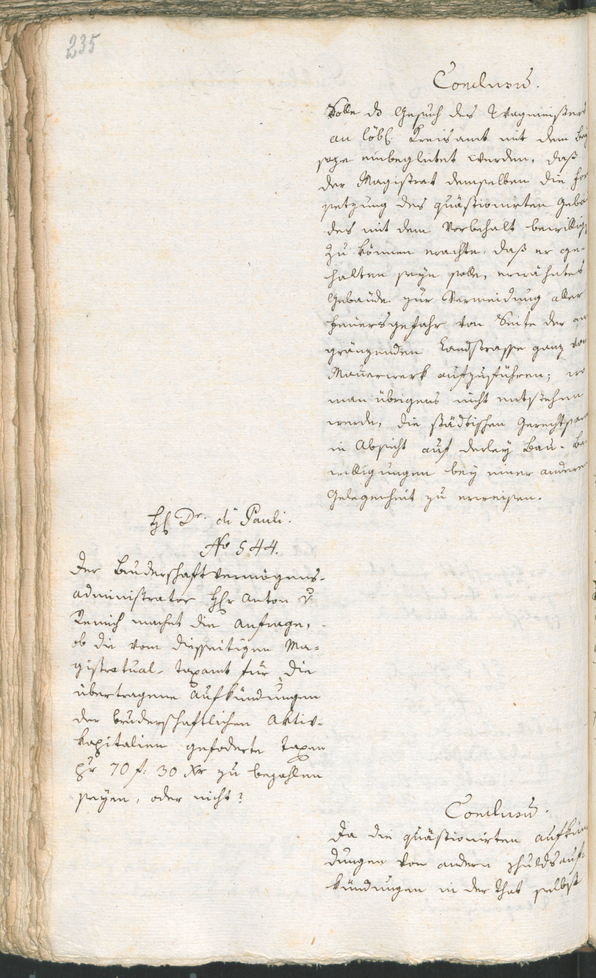 235
Conclusum.
Solle das Gesuch des Wagmeisters
an löbl. Kreisamt mit dem Bey-
satze einbegleitet werden, daß
der Magistrat demselben die
setzung des quästionirten Gebäu
des mit dem Vorbehalt bewilligen
zu können erachte, daß er ge-
halten seyn solle, erwähntes
Gebäude zur Vermeidung aller
Feuersgefahr von Seite der an
gränzenden Landstrasse ganz von
Mauerwerk aufzuführen;
man übrigens nicht entstehen
werde, die städtischen Gerechtsamen
in Absicht auf derley Bau- be
willigungen bey einer andern
Gelegenheit zu erweisen.
H. Dr. di Pauli.
No 544.
Der Bruderschaftvermögens-
administrator Hr Anton v
Remich machet die Anfrage,
ob die vom diesseitigen Ma-
gistratual- taxamt für die
übertragene Aufkündungen
der bruderschaftlichen Aktiv-
kapitalien geforderte taxen
pr 70 f. 30 Xr zu bezahlen
seyen, oder nicht?
Conclusum.
Da die quästionirten Aufkün
dungen von andern Schuldsauf-
kündungen in der That selbst